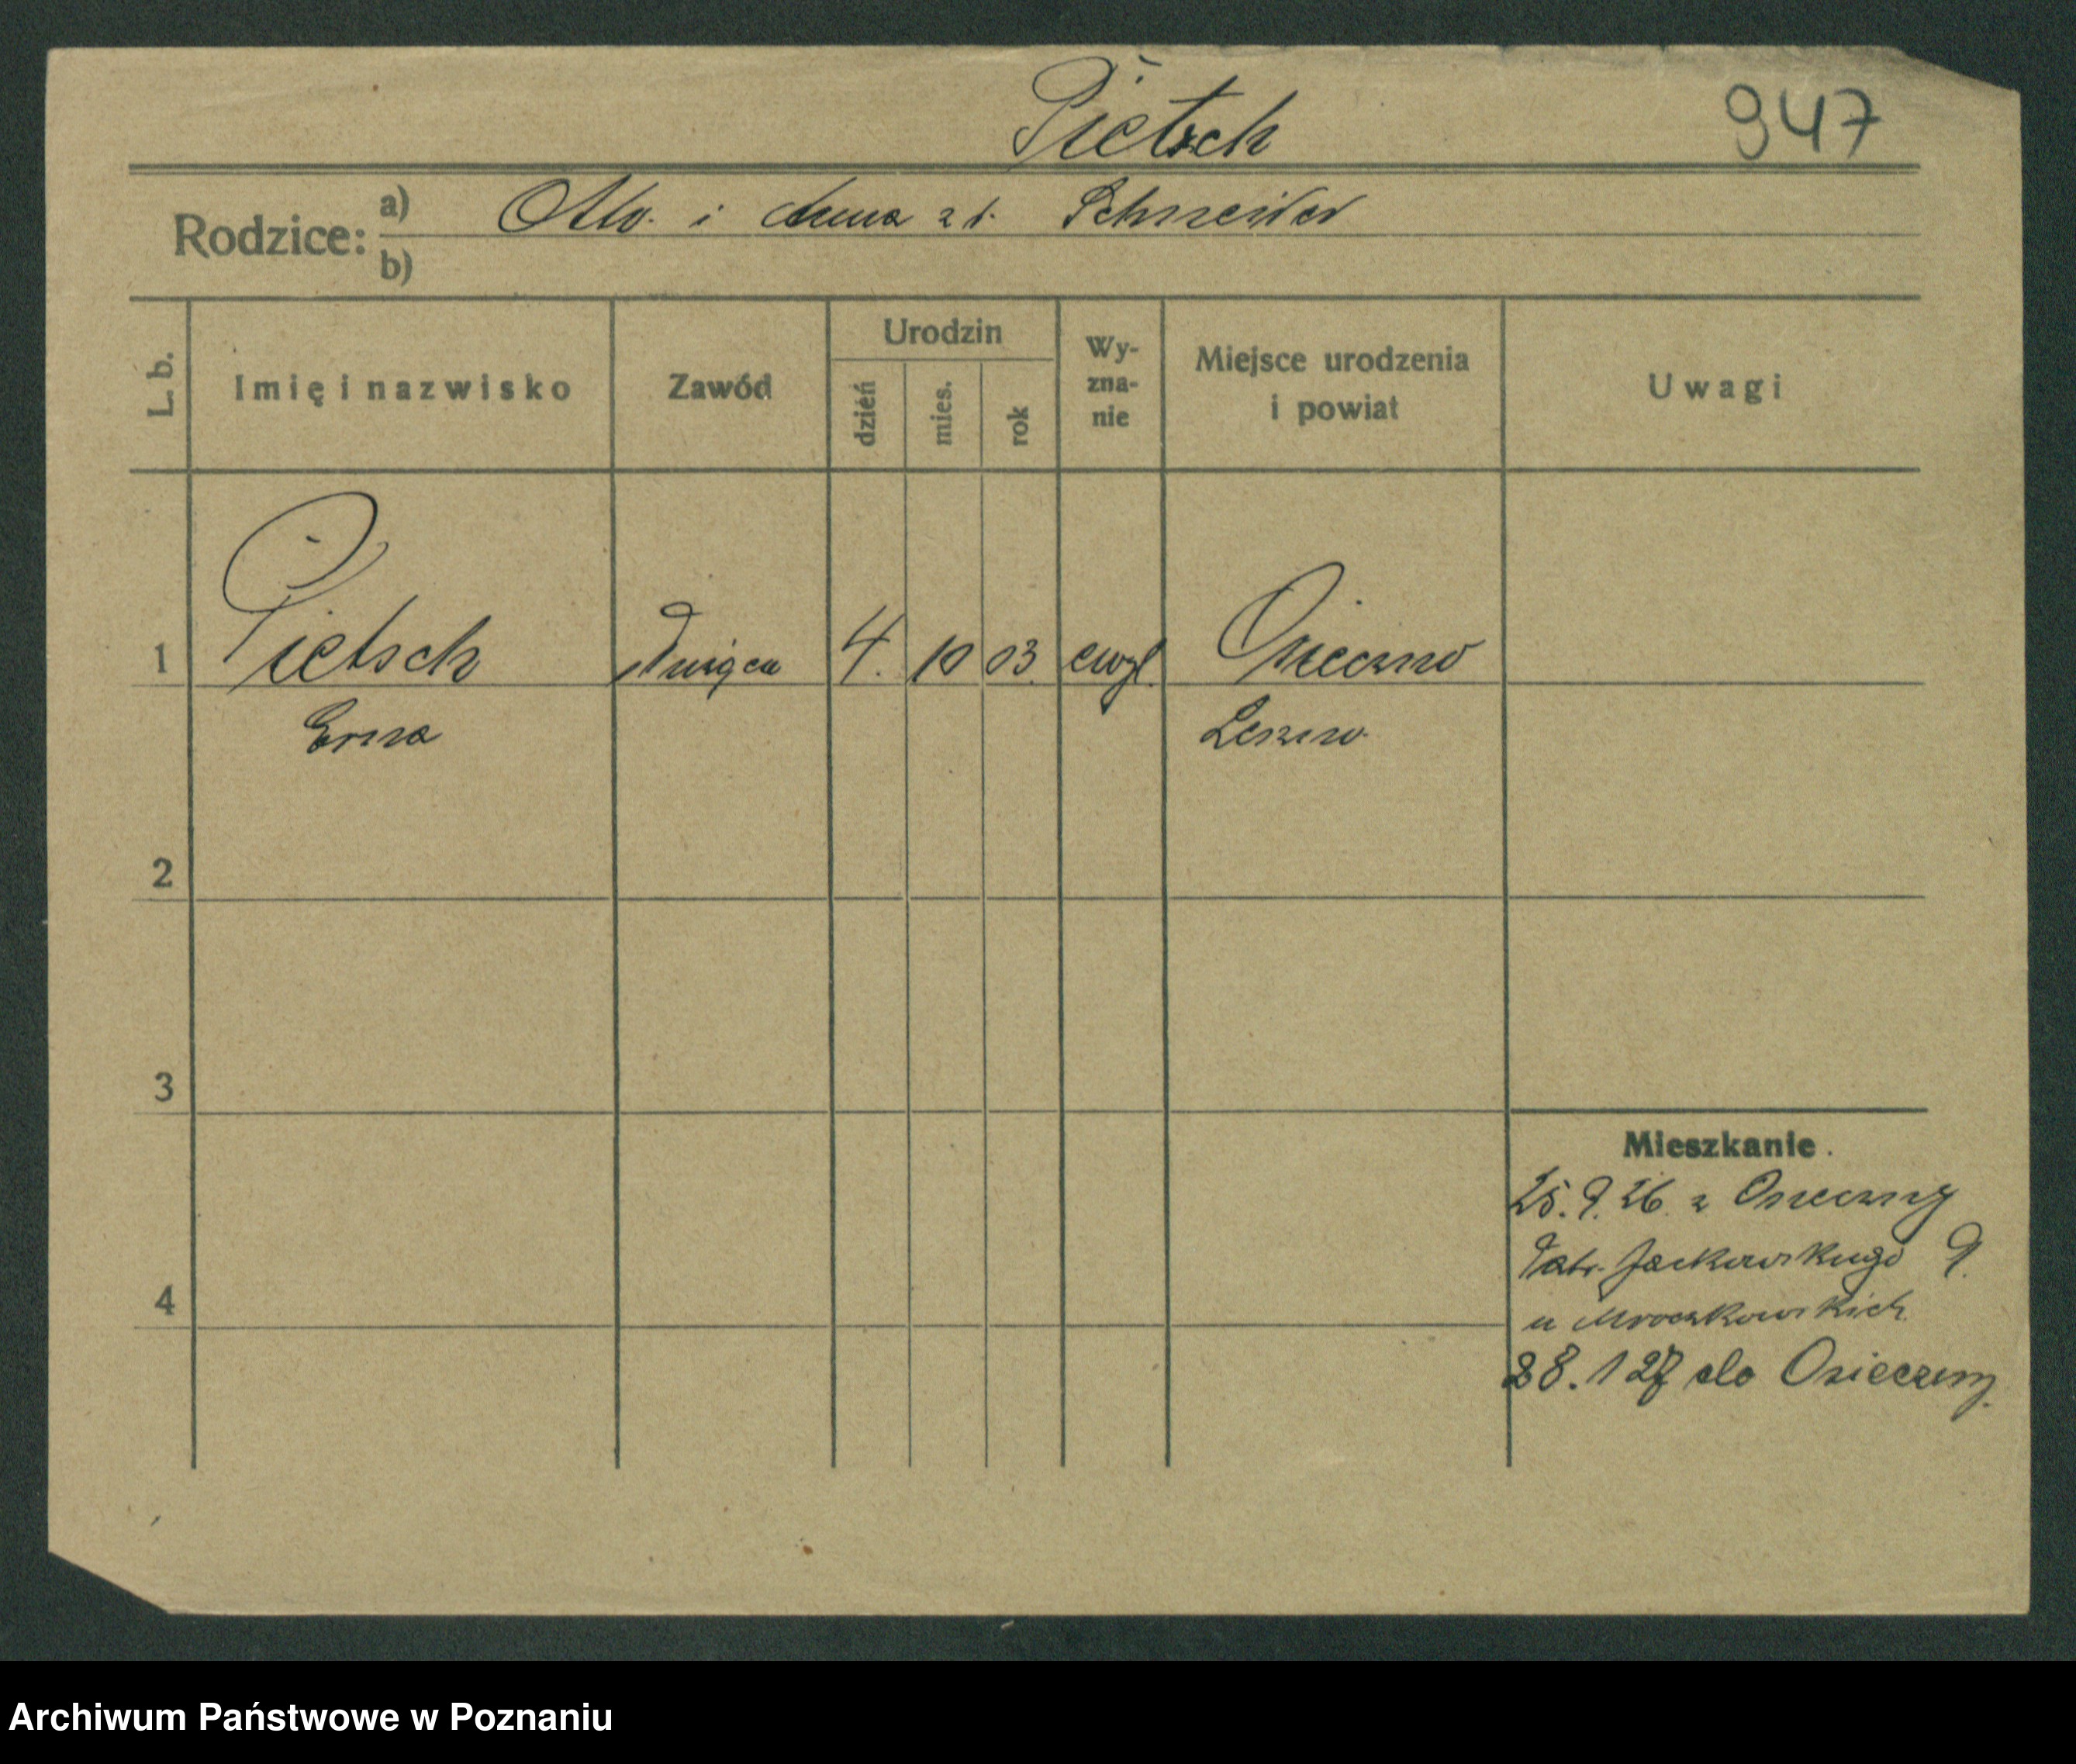 Pietsch 947
Rodzice: a) Otto i Anna z d. Schneider
b)
L. b. Imię i nazwisko Zawód Urodzin dzień mies. rok Wy-zna-nie Miejsce urodzenia i powiat Uwagi
1 Pietsch służąca 4. 10 03. ewgl. Osieczno
Erna Leszno.
2
3
Mieszkanie.
25.9.26. z Osieczny
Jackowskiego 9.
4
u Mroczkowskich
28.1 27 do Osieczny.
Archiwum Państwowe w Poznaniu